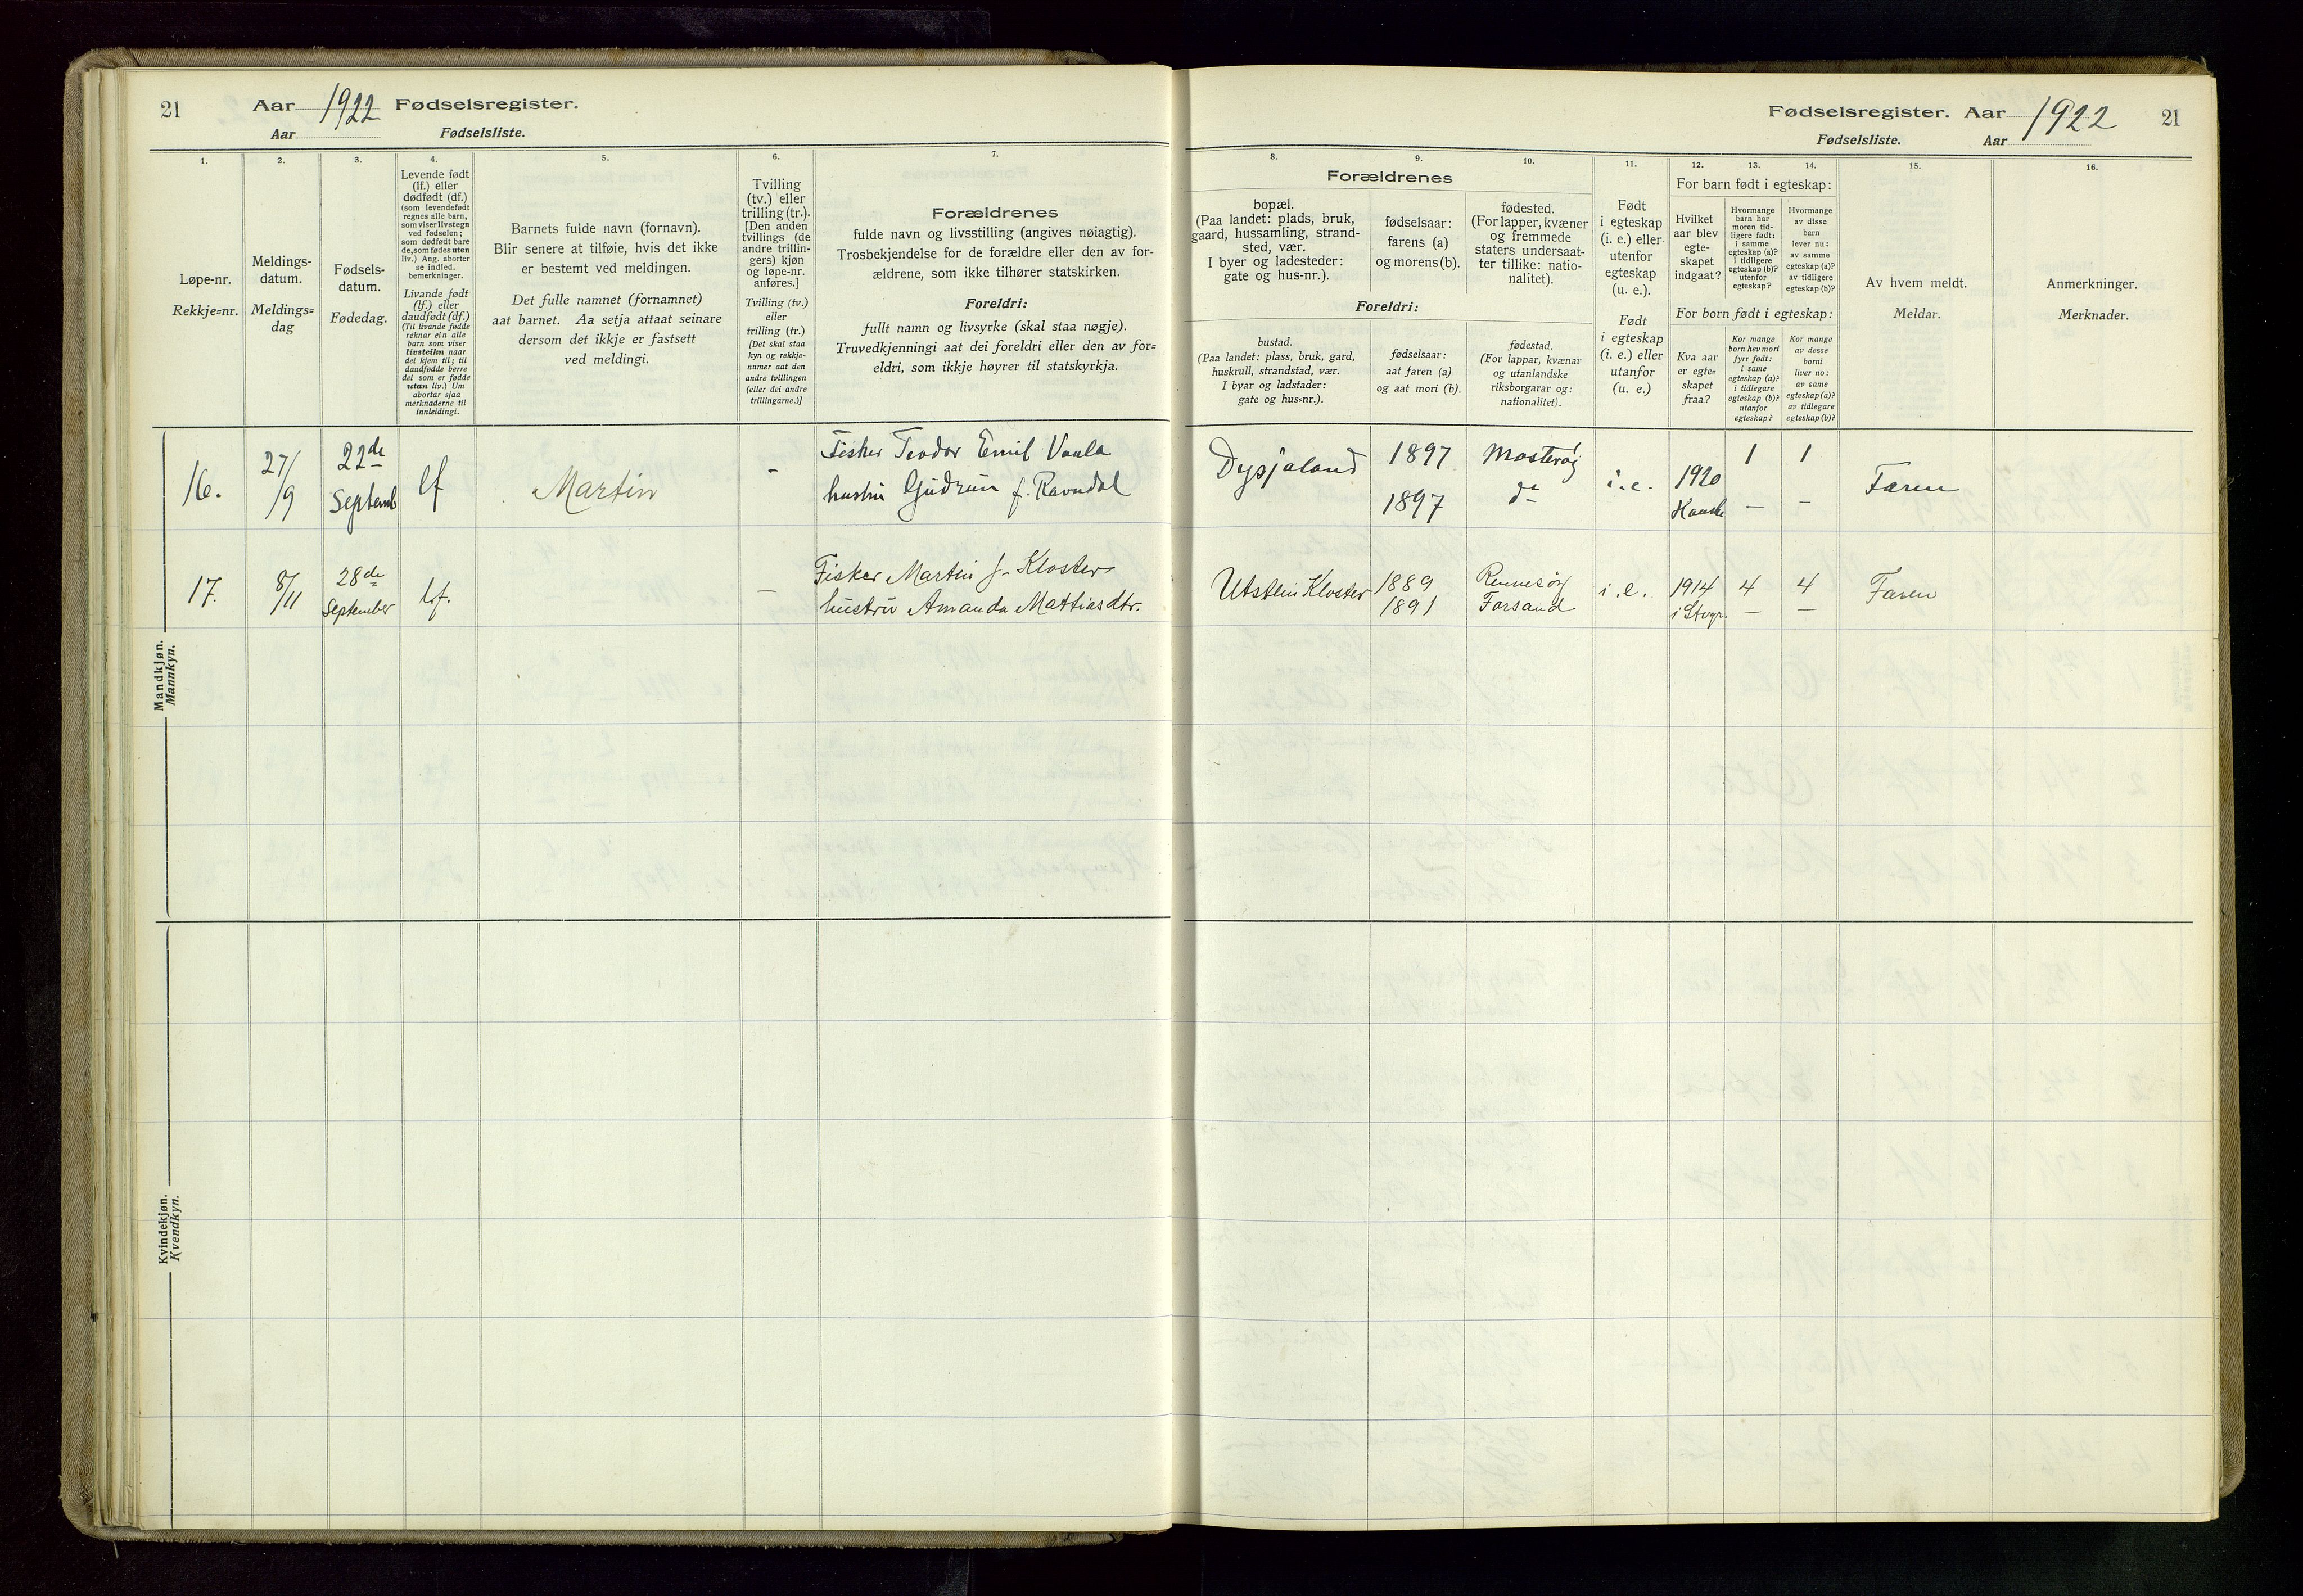 21
Aar 1922 Fødselsregister.
Aar Fødselsliste.
1.
2.
3.
4.
5.
6.
7.
Løpe-nr.
Rekkje=nr.
Meldings-
datum.
Meldings=
dag
Fødsels-
datum.
Fødedag.
Levende født
(lf.) eller
dødfødt (df.)
(som levendefødt
regnes alle barn,
som viser livstegn
ved fødselen;
som dødfødt bare
de, som fødes uten
liv.) Ang. aborter
se indled.
bemerkninger.
Livande født
(lf.) eller
daudfødt (df.)
(Til livande fødde
reknar ein alle
barn som viser
livsteikn naar
dei kjem til; til
daudfødde berre
dei som er fødde
utan liv.) Um
abortar sjaa
merknaderne til
innleidingi.
Barnets fulde navn (fornavn).
Blir senere at tilføie, hvis det ikke
er bestemt ved meldingen.
Det fulle namnet (fornamnet)
aat barnet. Aa setja attaat seinare
dersom det ikkje er fastsett
ved meldingi.
Tvilling
(tv.) eller
trilling (tr.).
[Den anden
tvillings (de
andre trillin-
gers) kjøn
og løpe-nr.
anføres.]
Tvilling (tv.)
eller
trilling (tr.)
[Det skal staa
kyn og rekkje-
numer aat den
andre tvillingen
(eller dei andre
trillingarne.)]
Forældrenes
fulde navn og livsstilling (angives nøiagtig).
Trosbekjendelse for de forældre eller den av for-
ældrene, som ikke tilhører statskirken.
Foreldri:
fullt namn og livsyrke (skal staa nøgje).
Truvedkjenningi aat dei foreldri eller den av for=
eldri, som ikkje høyrer til statskyrkja.
Mandkjøn.
Mannkyn.
16.
27/9
22de
Septemb
lf
Martin
-
Fisker Teodor Emil Vaula
hustru Gudrun f. Ravndal
17.
8/11
28de
September
lf.
—
Fisker Martin J. Kloster
hustru Amanda Mattiasdtr.
Kvindekjøn.
Kvendkyn.
Fødselsregister. Aar 1922
21
Fødselsliste. Aar
8.
9.
10.
11.
12.
13.
14.
15.
16.
Forældrenes
bopæl.
(Paa landet: plads, bruk,
gaard, hussamling, strand-
sted, vær.
I byer og ladesteder:
gate og hus-nr.).
fødselsaar:
farens (a)
og morens (b).
fødested.
(For lapper, kvæner
og fremmede
staters undersaat-
ter tillike: natio-
nalitet).
Foreldri:
bustad.
(Paa landet: plass, bruk, gard,
huskrull, strandstad, vær.
I byar og ladstader:
gate og hus=nr.).
fødselsaar:
aat faren (a)
og aat mori (b).
fødestad.
(For lappar, kvænar
og utanlandske
riksborgarar og:
nationalitet).
Født
i egteskap
(i. e.) eller
utenfor
egteskap
(u. e.).
Født
i egteskap
(i. e.) eller
utanfor
(u. e.)
For barn født i egteskap:
Hvilket
aar blev
egte-
skapet
indgaat?
Hvormange
barn har
moren tid-
ligere født:
i samme
egteskap (a)?
i tidligere
egteskap (b)?
utenfor
egteskap?
Hvormange
av disse
barn
lever nu:
av samme
egteskap (a)?
av tidligere
egteskap (b)?
For born født i egteskap:
Kva aar
er egte=
skapet
fraa?
Kor mange
born hev mori
fyrr født:
i same
egteskap (a)?
i tidlegare
egteskap (b)?
utanfor
egteskap?
Kor mange
av desse
borni
liver no:
av same
egteskap (a)?
av tidlegare
egteskap (b)?
Av hvem meldt.
Meldar.
Anmerkninger.
Merknader.
Dysjaland
1897
1897
Mosterøy
do
i.e.
1920
1
—
1
—
Faren
Utstein Kloster
1889
1891
Rennesøy
Forsand
i.e.
1914
i Stvgr.
4
—
4
—
Faren